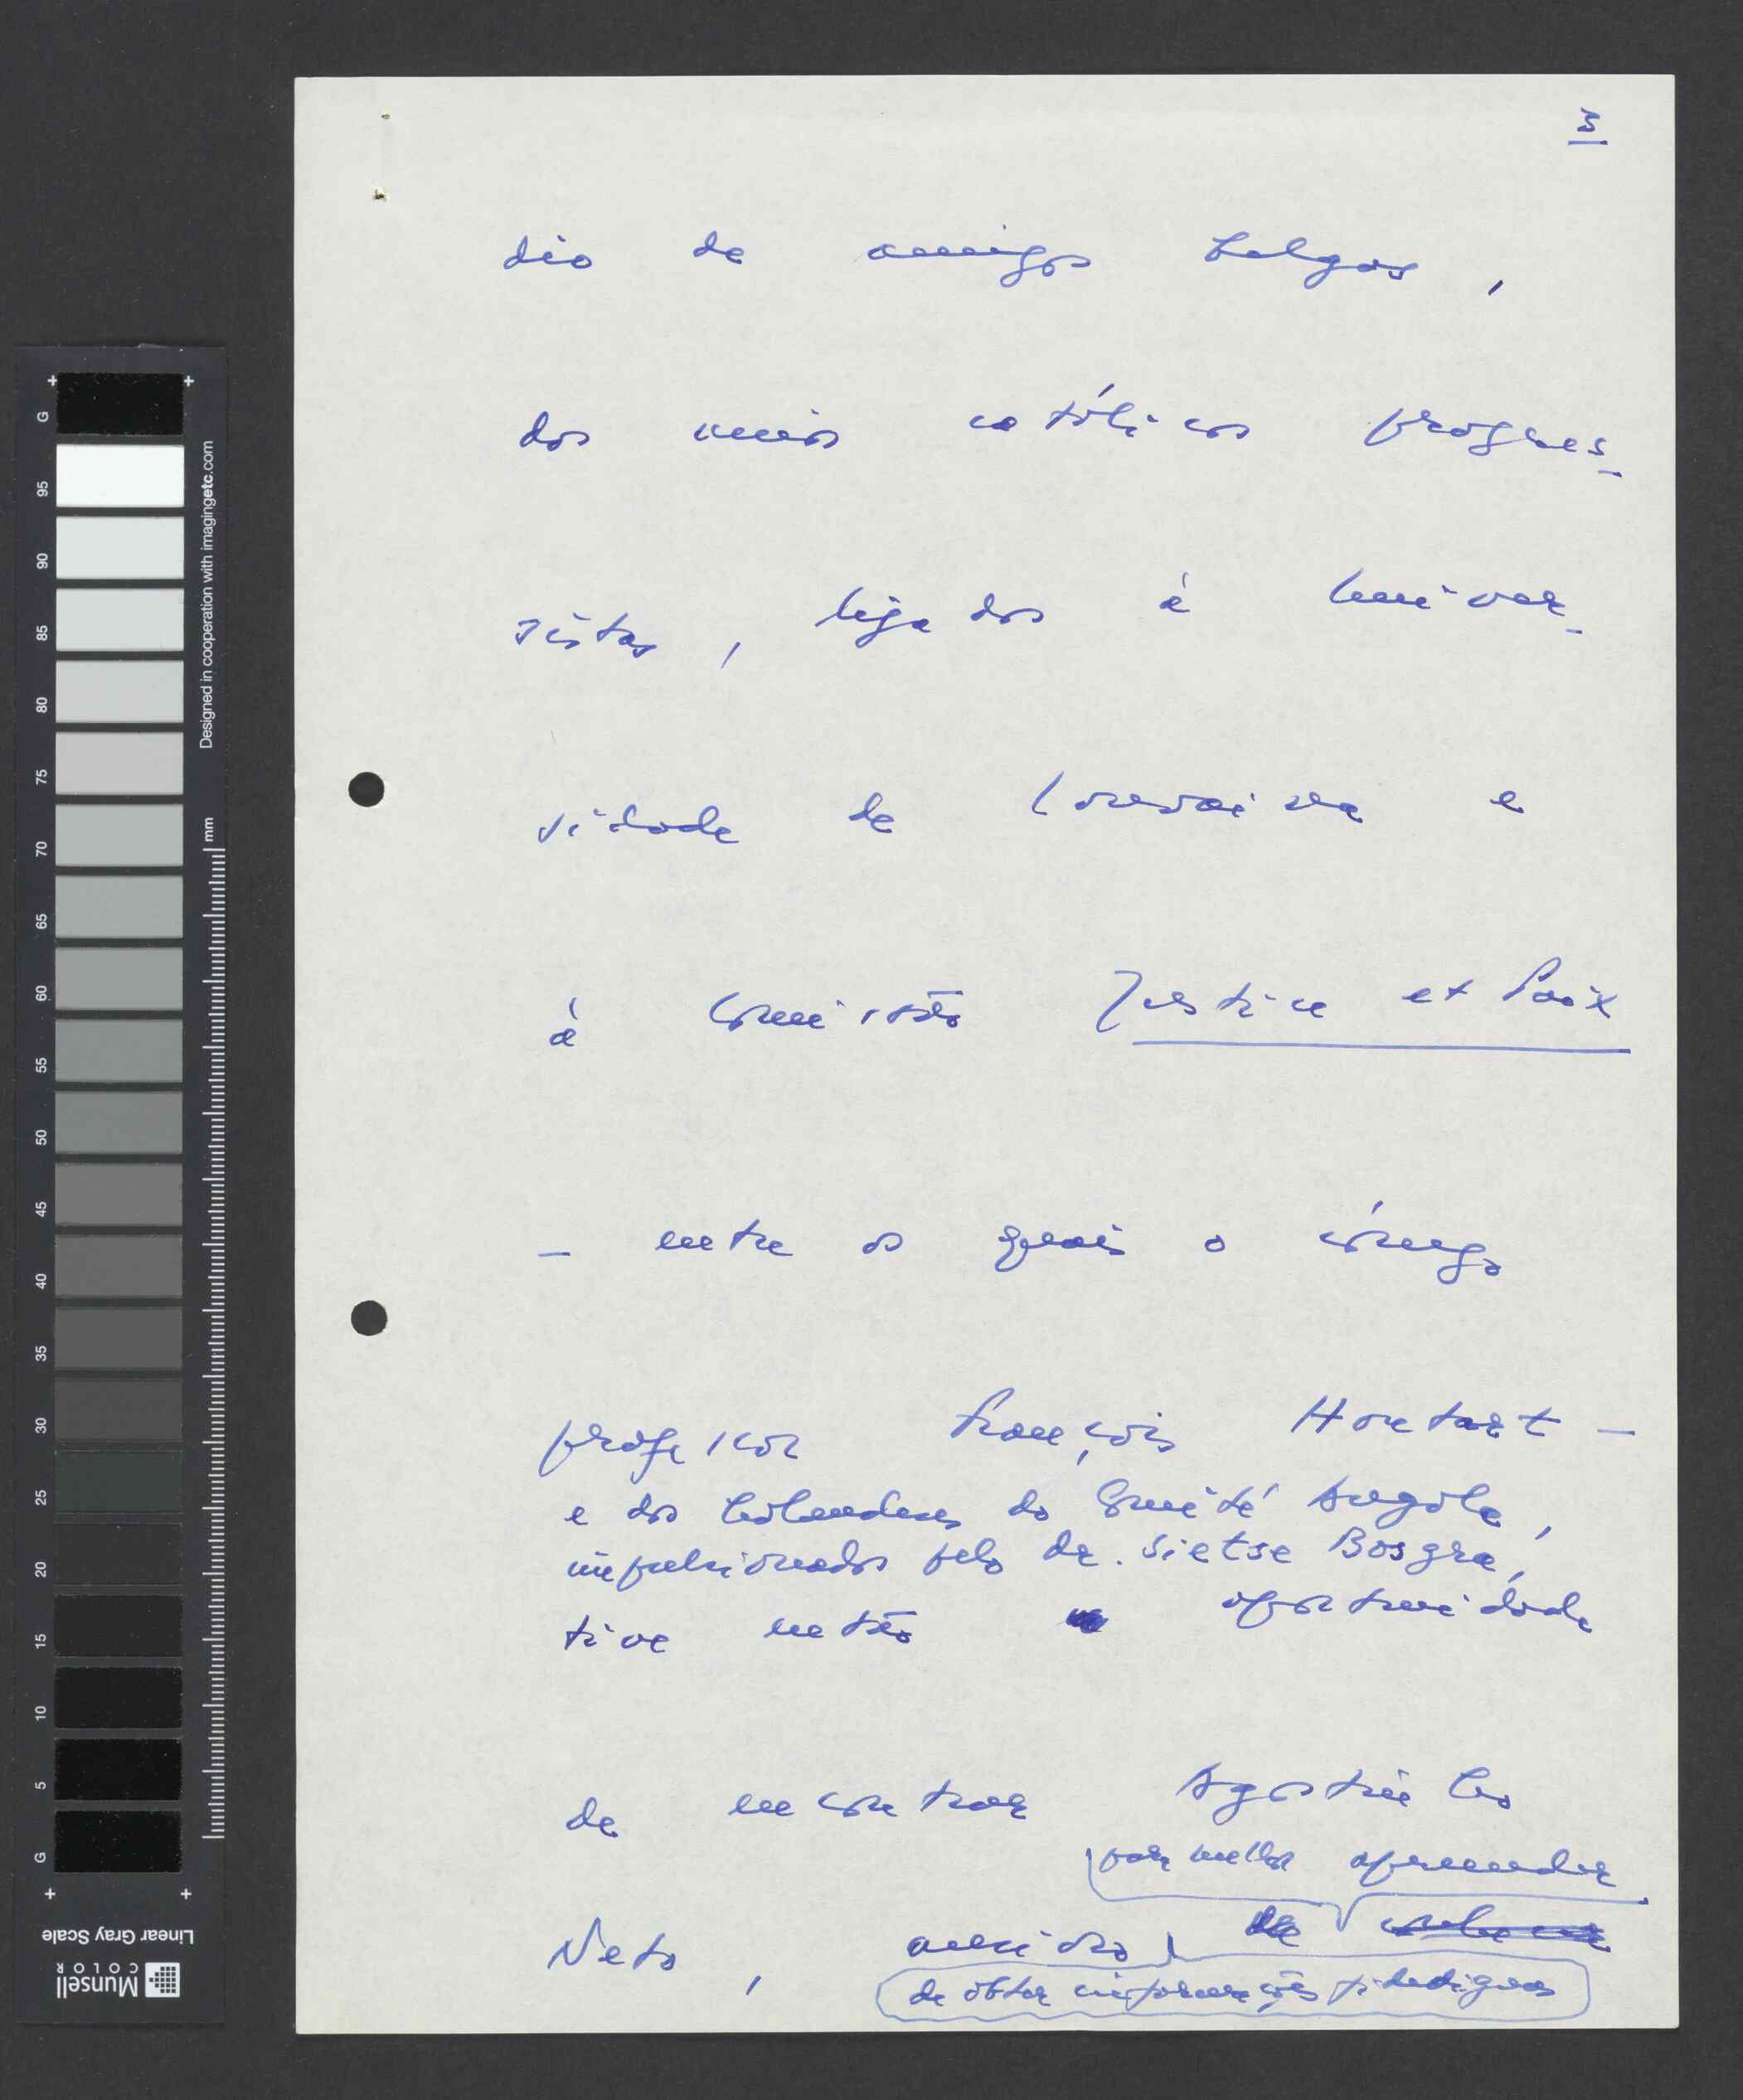 3
dio de amigos belgas,
dos meios católicos progres-
sistas, ligados à Univer-
sidade de Lovaina e
à Comissão Justice et Paix
— entre os quais o cónego
professor François Houtart —
e dos holandeses do Comité Angola,
impulsionados pelo dr. Sietse Bosgra,
tive então oportunidade
de encontrar Agostinho
para melhor apreender
Neto, ansioso
de obter informações fidedignas
G 95 90 85 80 75 70 65 60 55 50 45 40 35 30 25 20 15 10 5 G
Designed in cooperation with imagingetc.com
mm
Munsell COLOR
Linear Gray Scale